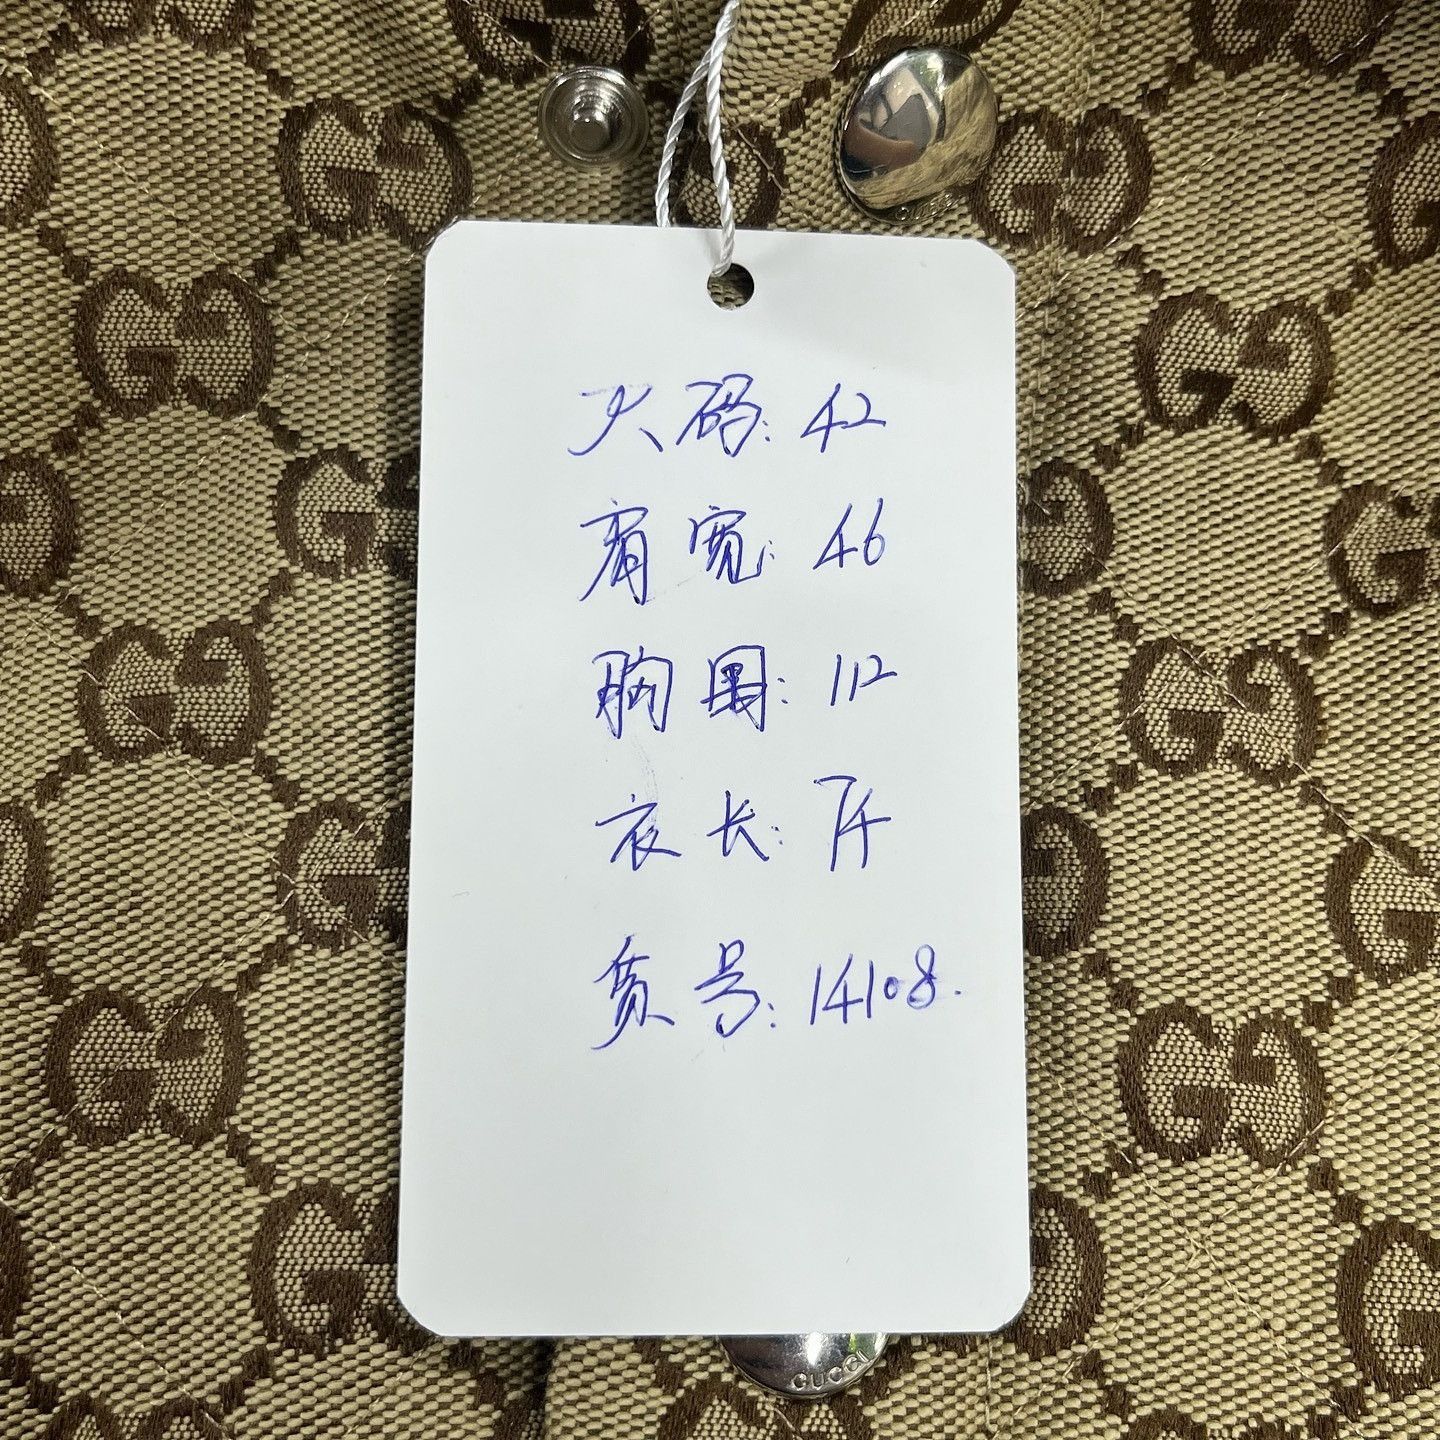 GUCCI
大码: 42
肩宽: 46
胸围: 112
衣长: 74
货号: 14108.
GUCCI